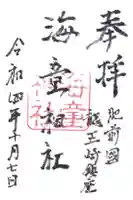 奉拝
肥前國
龍王崎鎮座
海童神社
海童神社
令和四年十月七日